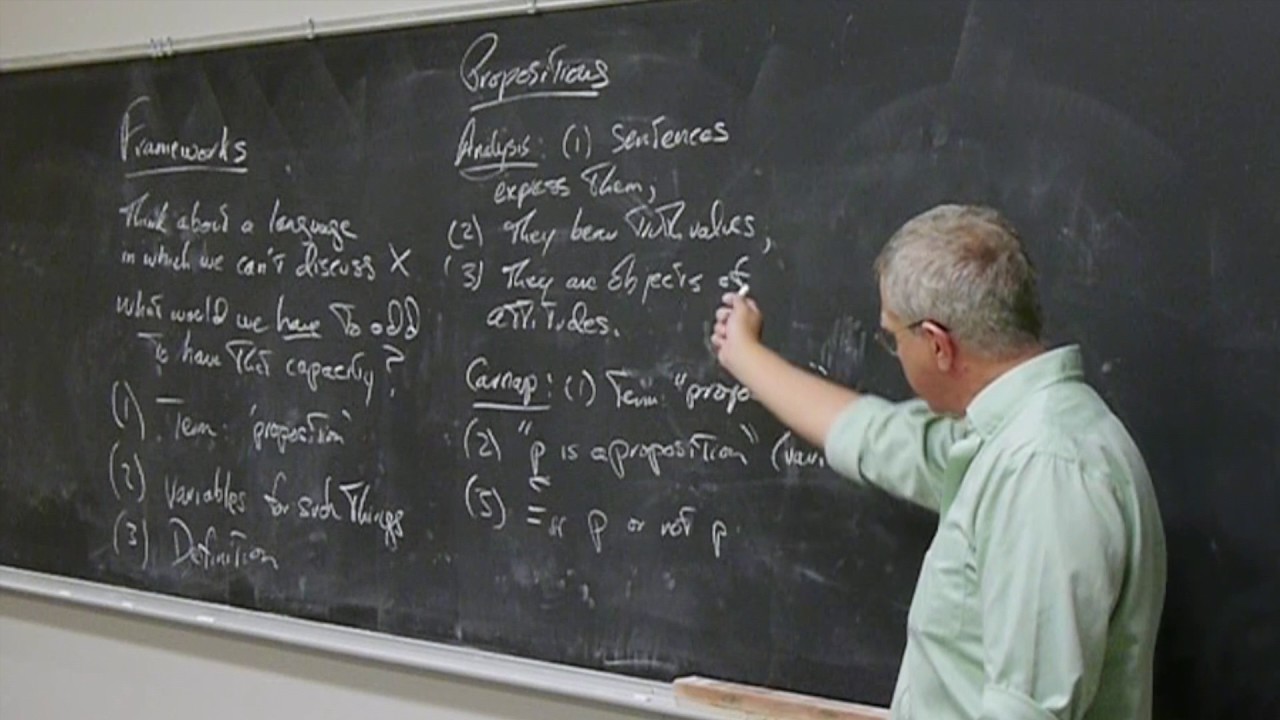 Frameworks
Think about a language
in which we can't discuss X
what would we have to add
to have that capacity?
(1) Term: 'proposition'
(2) variables for such things
(3) Definition
Propositions
Analysis: (1) sentences
express them;
(2) They bear truth values;
(3) They are objects of
attitudes.
Carnap: (1) Term: "propo
(2) "p is a proposition" (vari
(3) = p or not p.